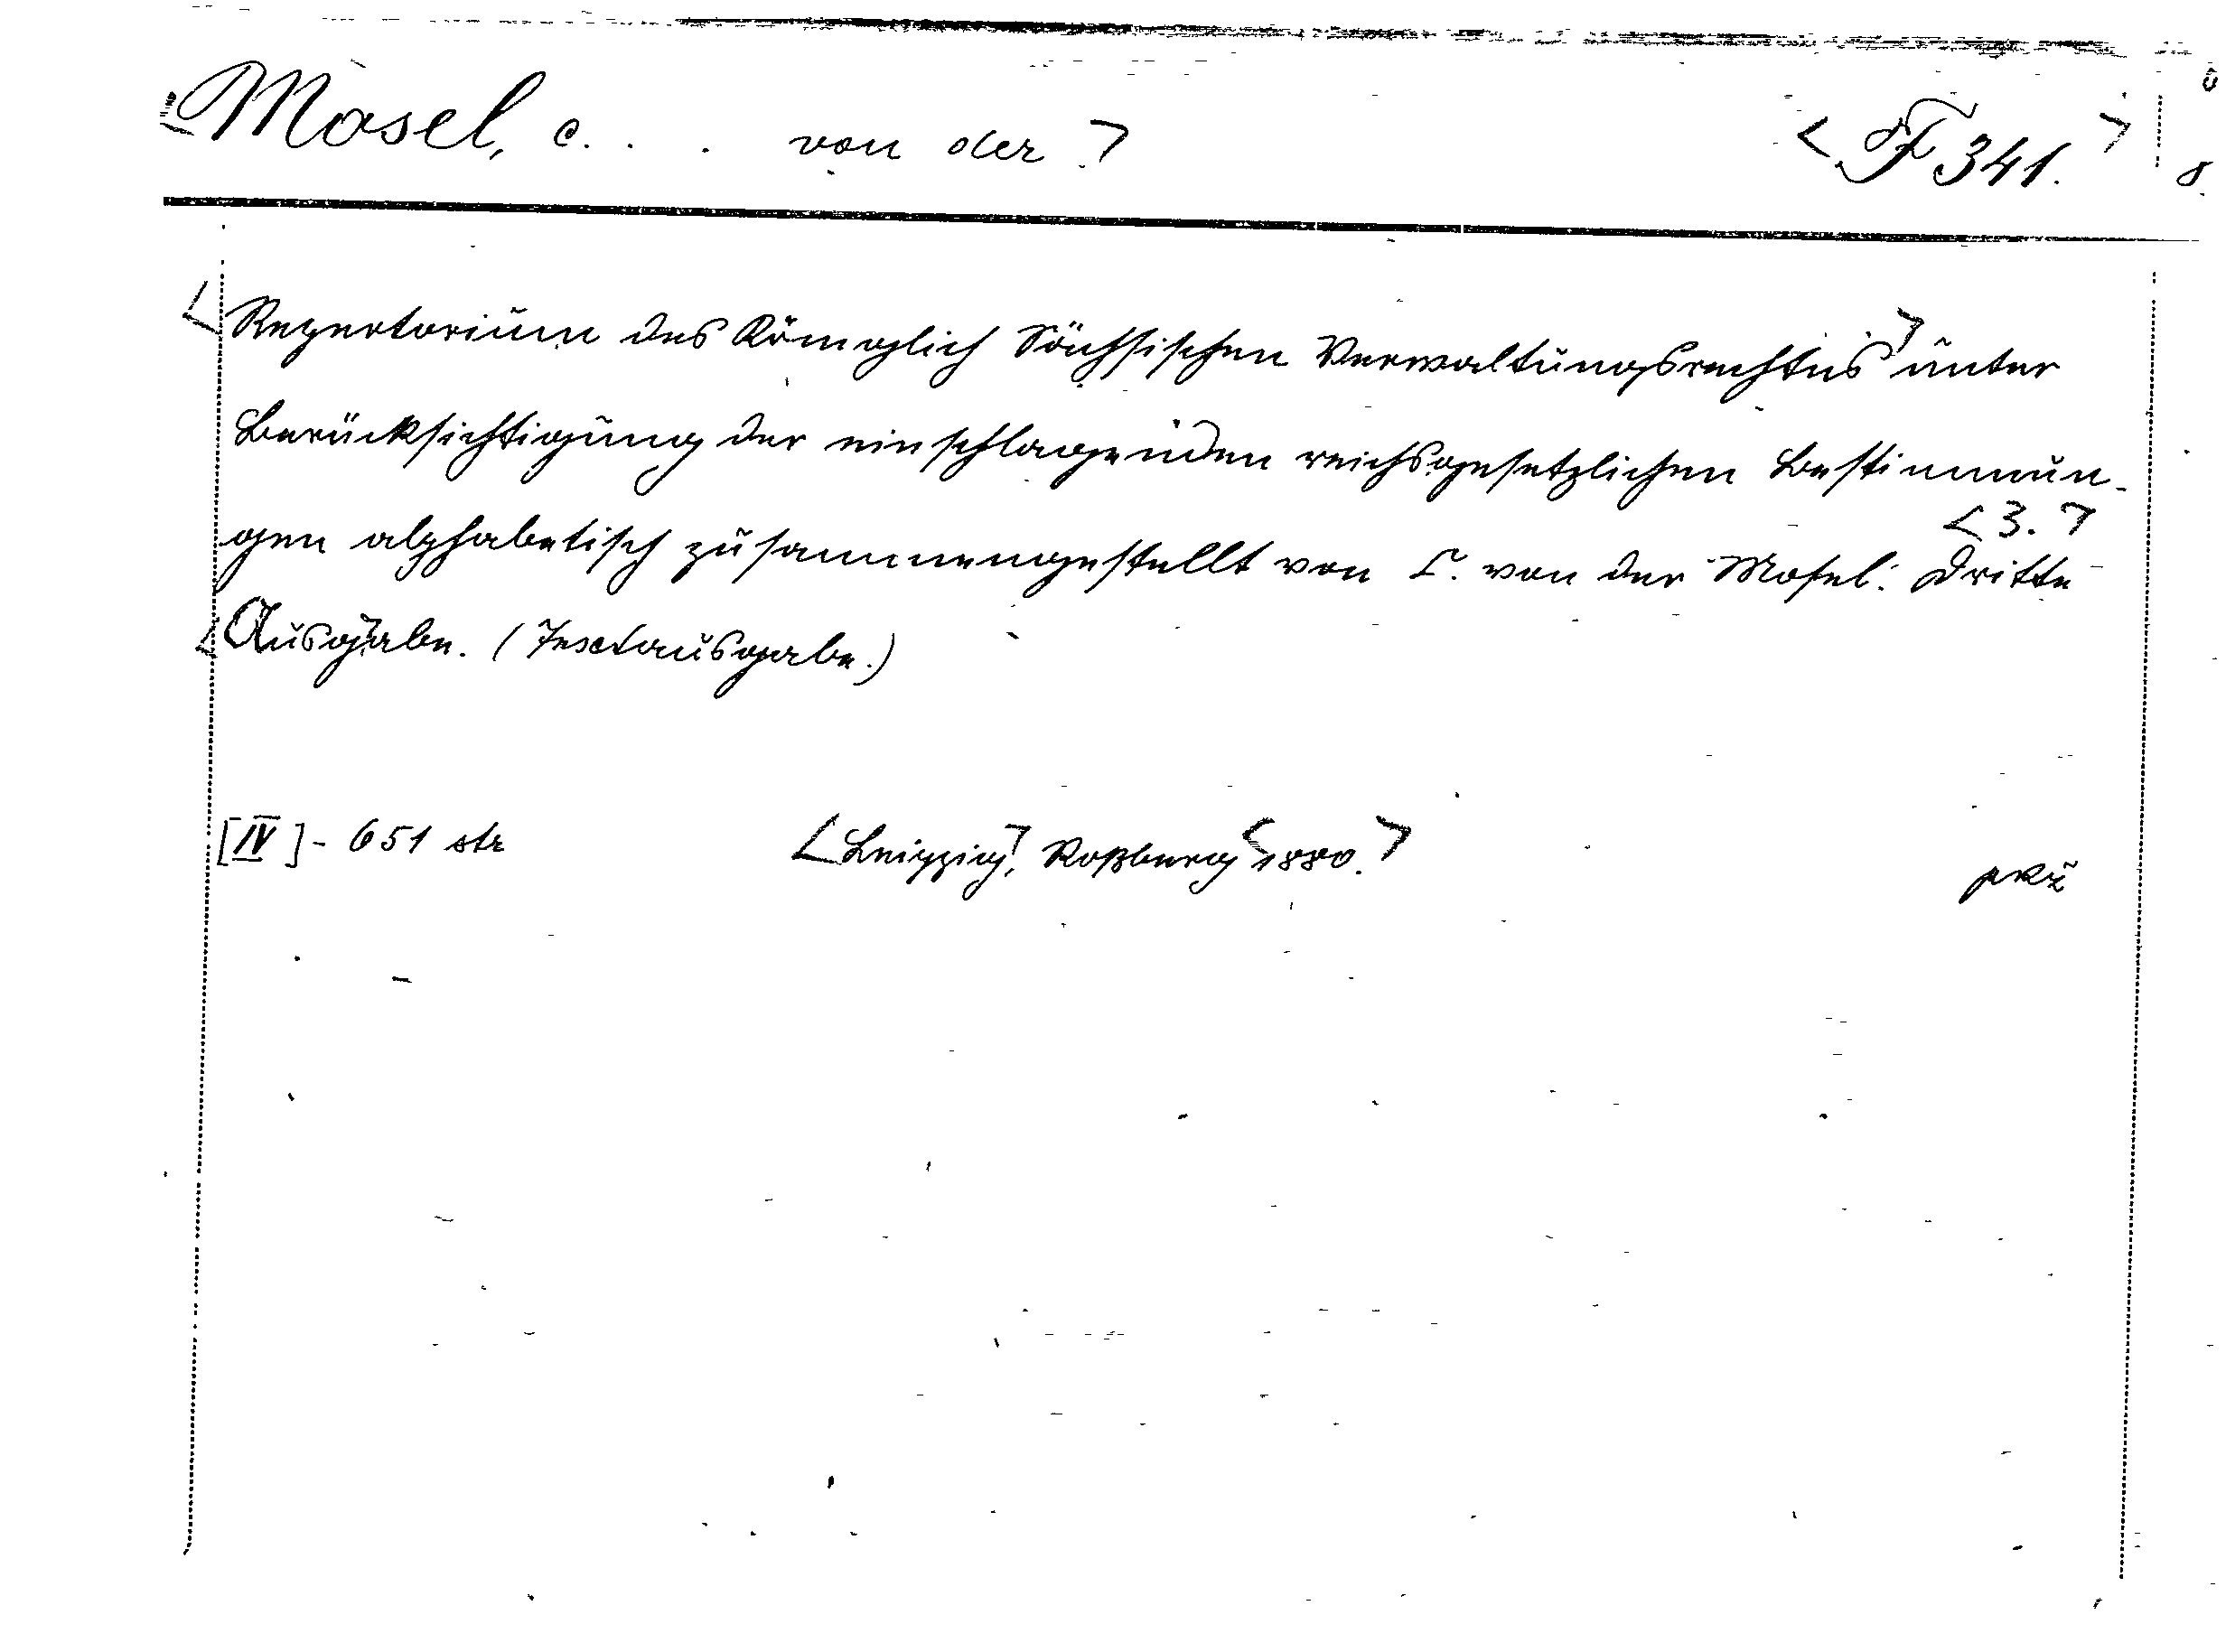 Mosel, C. . . von der
F 341.
8
Repertorium des Königlich Sächsischen Verwaltungsrechtes unter
Berücksichtigung der einschlagenden reichsgesetzlichen Bestimmun-
<3.>
gen alphabetisch zusammengestellt von C. von der Mosel. Dritte
Ausgabe. (Textausgabe.)
[IV] - 651 str Leipzig, Roßberg 1880. prž